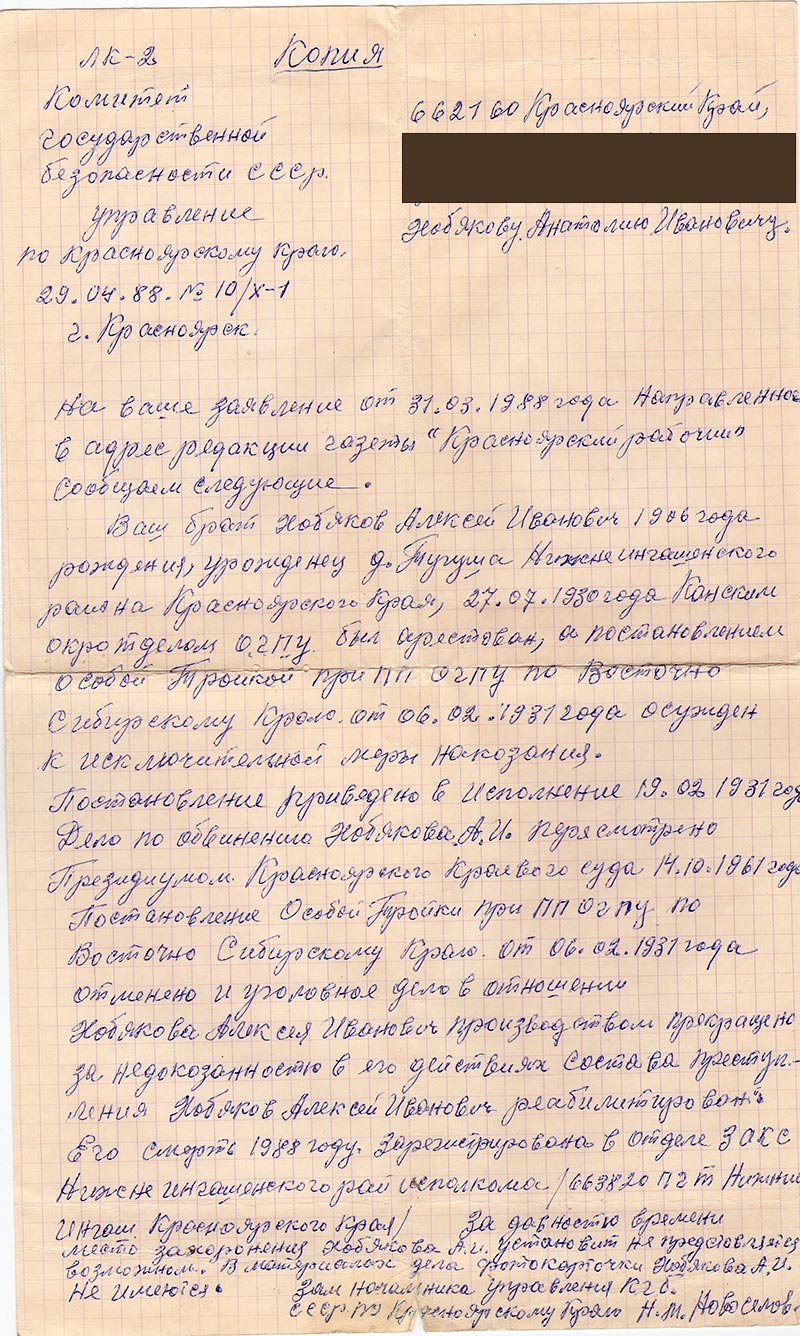 ЛК-2
Копия
Комитет
государственной
безопасности СССР.
управление
по Красноярскому Краю.
29.04.88. № 10/Х-1
г. Красноярск.
662160 Красноярский Край,
Хобякову Анатолию Ивановичу.
На ваше заявление от 31.03.1988 года направленное
в адрес редакции газеты "Красноярский рабочий"
Сообщаем следующие.
Ваш брат Хобяков Алексей Иванович 1906 года
рождения, уроженец д. Тугуша Нижнеингашенского
района Красноярского Края, 27.07.1930 года Канским
окротделом ОГПУ. был арестован, а постановлением
Особой Тройкой при ПП ОГПУ по Восточно
Сибирскому Краю. от 06.02.1931 года осужден
к исключительной меры наказания.
Постановление приведено в исполнение 19.02 1931 год
Дело по обвинению Хобякова А.И. пересмотрено
Президиумом. Красноярского Краевого суда 14.10.1961 года
Постановление Особой Тройки при ПП ОГПУ по
Восточно Сибирскому Краю. от 06.02.1931 года
отменено и уголовное дело в отношении
Хобякова Алексея Иванович производством прекращено
за недоказанностю в его действиях состава преступ.-
ления Хобяков Алексей Иванович реабилитирован.
Его смерть 1988 году. Зарегистрирована в отделе ЗАКС
Нижнеингашенского рай исполкома /663820 пгт Нижние
Ингаш. Красноярского Края/ За давностю времени
место захоронения Хобякова А.И. установит не представляется
возможном. В материалах дела фотокарточки Хобякова А.И.
Не имеются.
Зам начальника управления КГБ.
СССР по Красноярскому Краю Н.М. Новоселов-